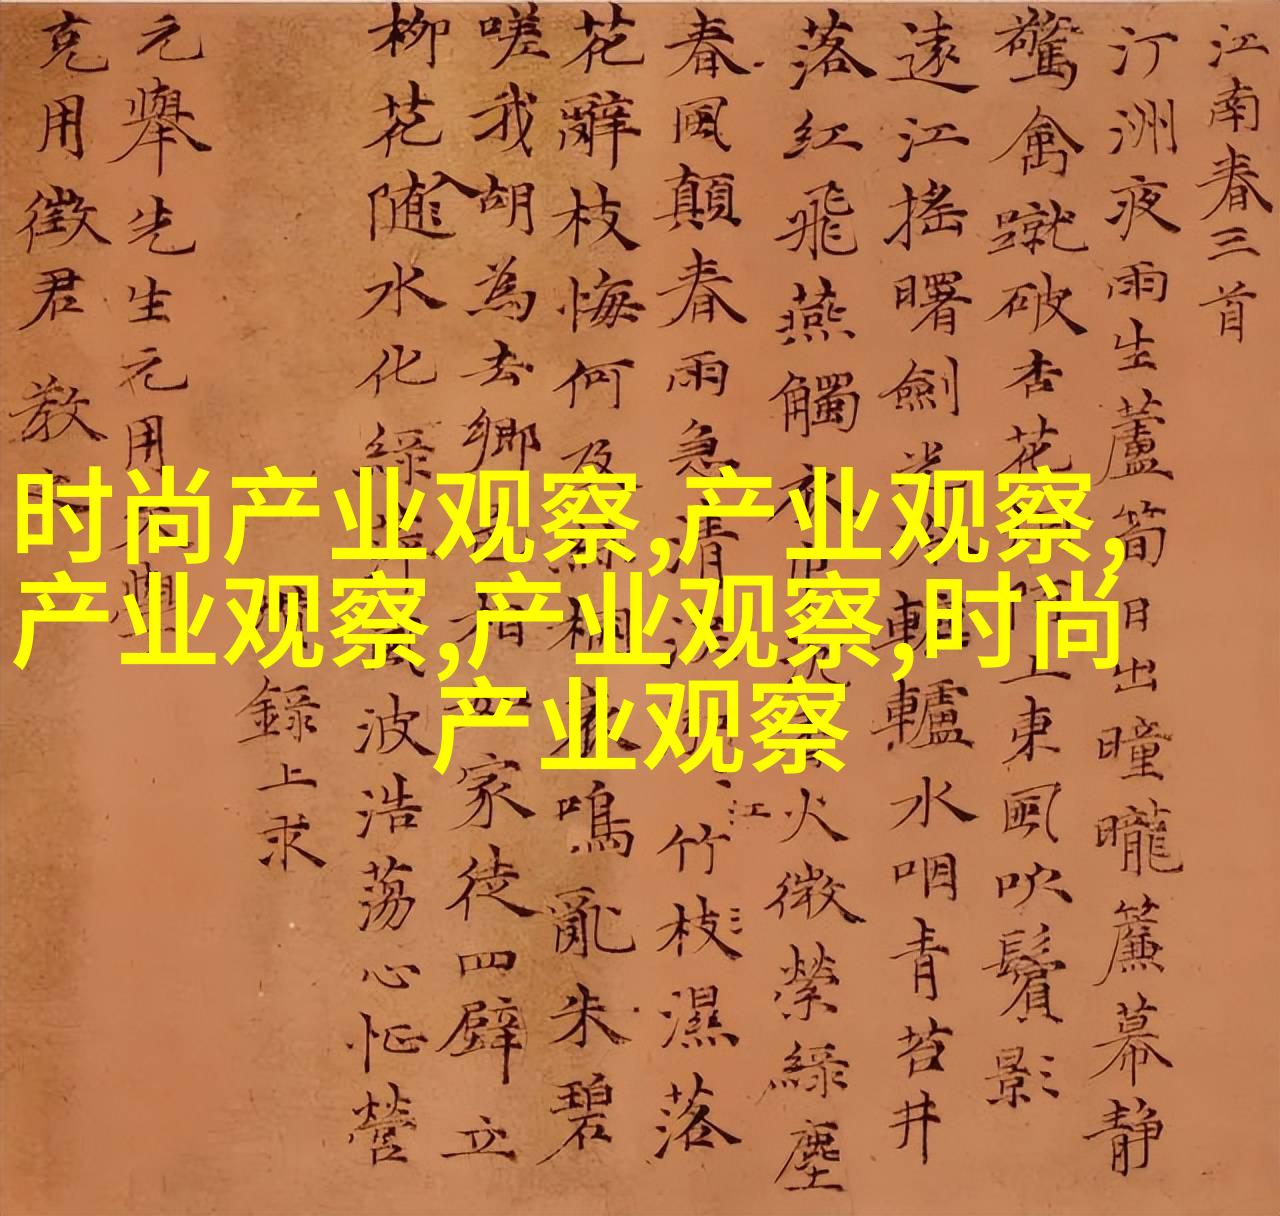 江南春三首
汀洲夜雨生蘆筍日出曈曨簾幕静
驚禽蹴破杏花上東風吹鬢影
遠江搖曙劍光轆轤水咽青苔井
落紅飛燕觸衣火微縈綠塵
春風顛春雨急清江竹枝濕落
花辭枝悔何及絲桐哀鳴亂朱碧
嗟我胡為去鄉邑相如家徒四壁立
柳花入随水化綠萍波浩蕩心怔營
錄上求
元舉先生元用學
克用徵君教
时尚产业观察,产业观察,
产业观察,产业观察,时尚
产业观察